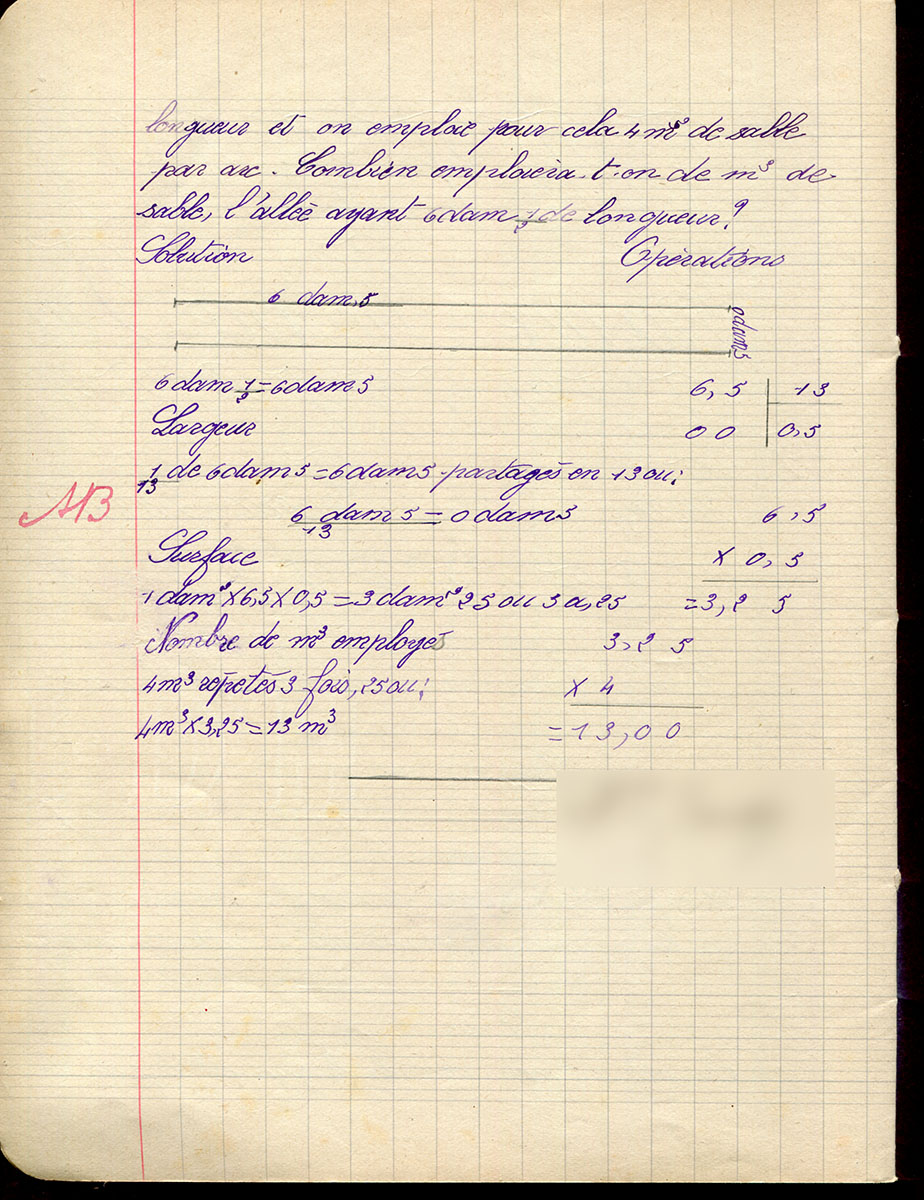 longueur et on emploie pour cela 4 m³ de sable
par are. Combien emploiera-t-on de m³ de
sable, l'allée ayant 6 dam 1/2 de longueur?
Solution Opérations
6 dam,5
0dam5
6 dam 1/2 = 6dam5 6,5 | 13
Largeur 00 | 0,5
1/13 de 6dam5 = 6dam5 partagés en 13 ou;
AB
6 dam 5/13 = 0dam5 6,5
Surface × 0,5
1 dam² × 6,5 × 0,5 = 3 dam² 25 ou 3a,25 =3,25
Nombre de m³ employés 3,25
4m³ repetés 3 fois,25 ou; × 4
4m³ × 3,25 = 13 m³ =13,00